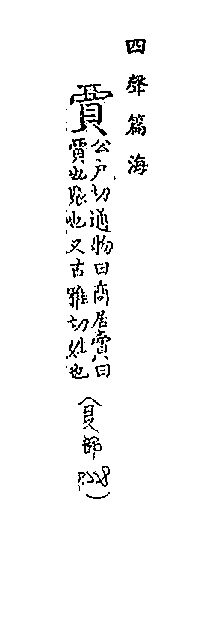 四聲篇海
賈
公戶切通物曰商居賣曰
賈也賑也又古雅切姓也
(貝部
P.228)